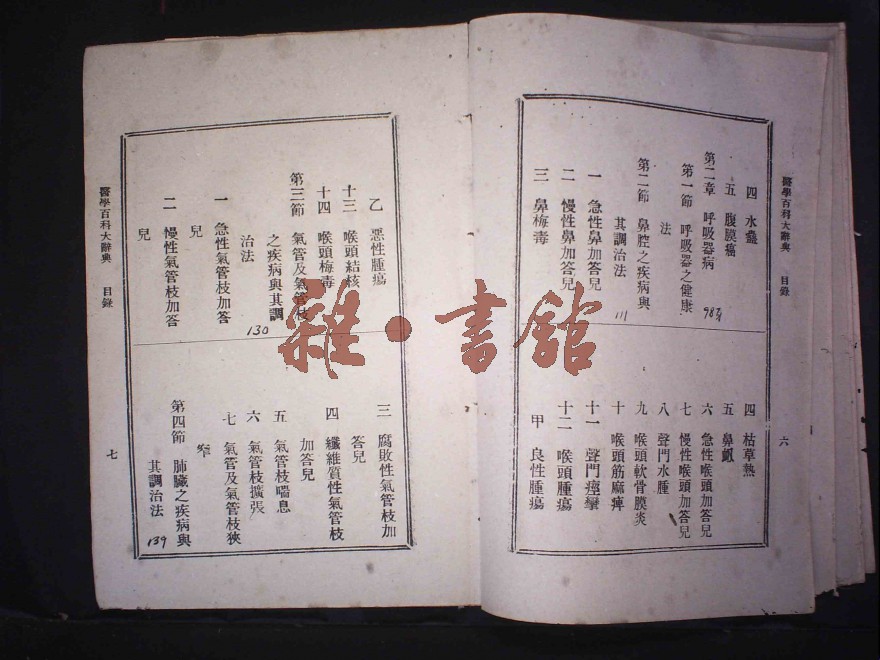 醫學百科大辭典 目錄
四 水蠱
五 腹膜癌
第二章 呼吸器病 98頁
第一節 呼吸器之健康
法
第二節 鼻腔之疾病與
其調治法 111
一 急性鼻加答兒
二 慢性鼻加答兒
三 鼻梅毒
四 枯草熱
五 鼻衄
六 急性喉頭加答兒
七 慢性喉頭加答兒
八 聲門水腫
九 喉頭軟骨膜炎
十 喉頭筋麻痺
十一 聲門痙攣
十二 喉頭腫瘍
甲 良性腫瘍
六
乙 惡性腫瘍
十三 喉頭結核
十四 喉頭梅毒
第三節 氣管及氣管枝
之疾病與其調
治法 130
一 急性氣管枝加答
兒
二 慢性氣管枝加答
兒
三 腐敗性氣管枝加
答兒
四 纖維質性氣管枝
加答兒
五 氣管枝喘息
六 氣管枝擴張
七 氣管及氣管枝狹
窄
第四節 肺臟之疾病與
其調治法 139
醫學百科大辭典 目錄
七
雜·書館